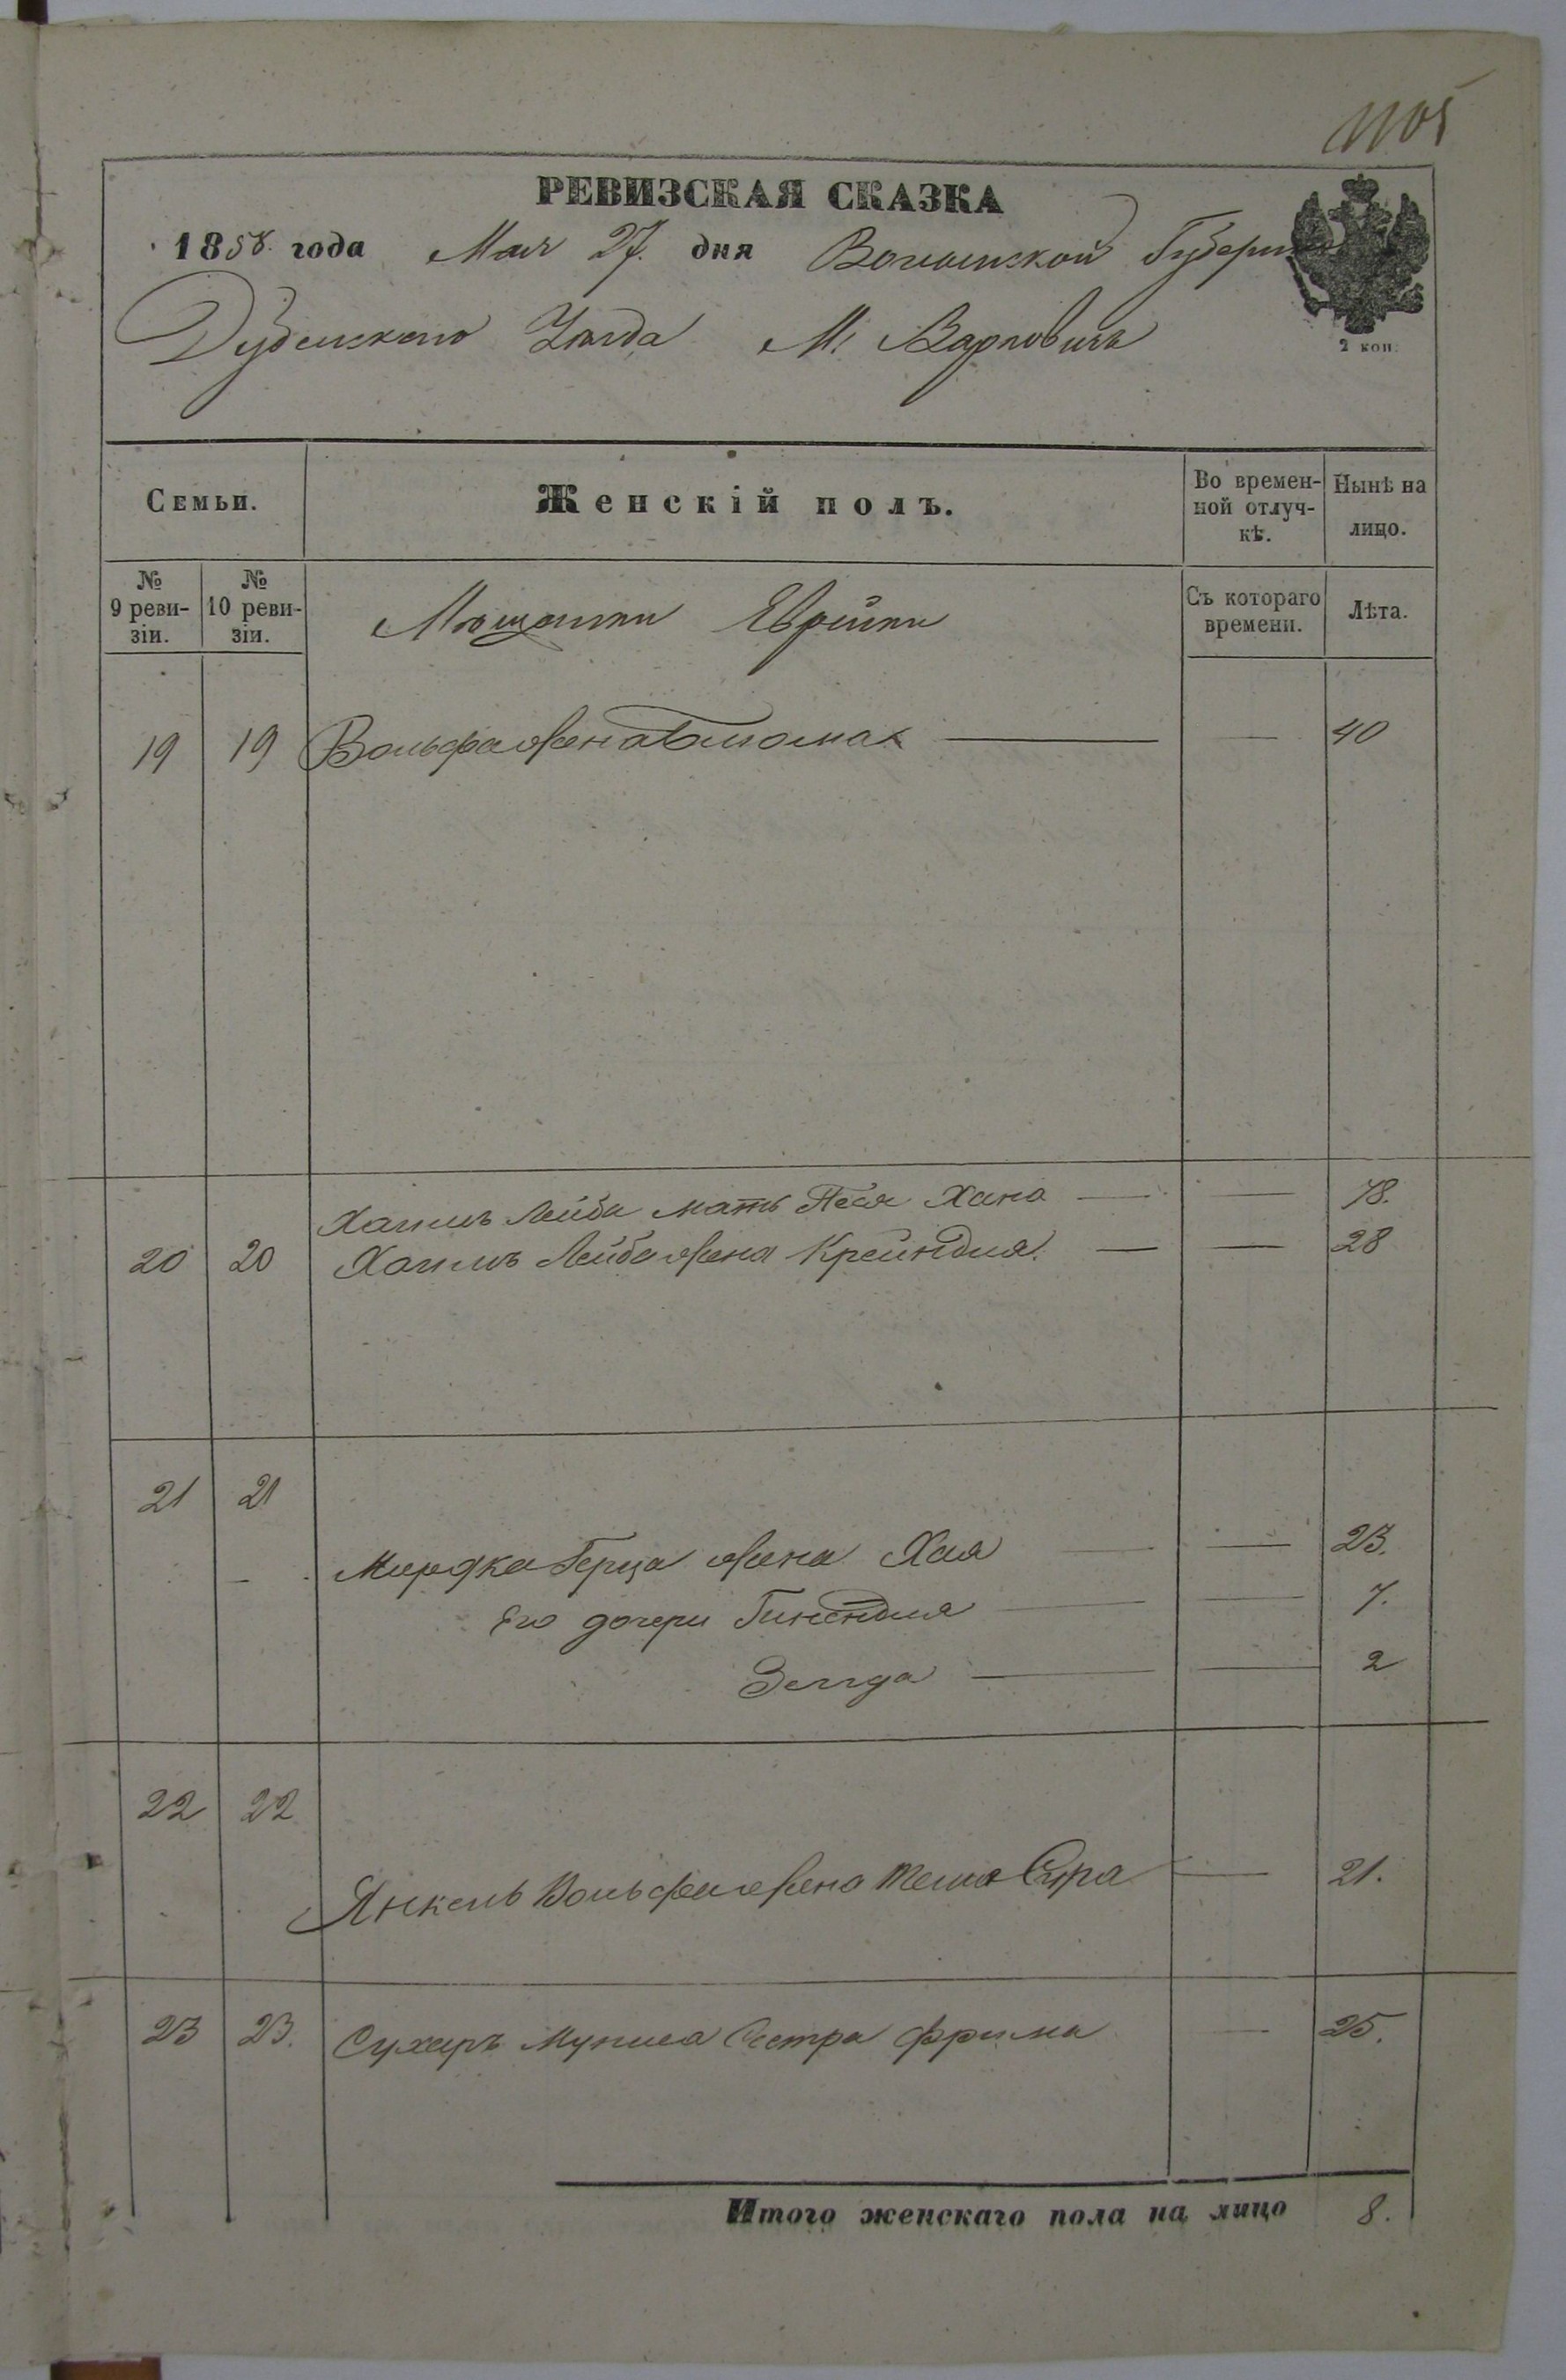 1105
РЕВИЗСКАЯ СКАЗКА
1858. года Мая 27. дня Волынской Губерніи
Дубенскаго Уѣзда М. Варковичъ
2 коп.
Семьи.
Женскій полъ.
Во времен-
ной отлуч-
кѣ.
Нынѣ на
лицо.
№
9 реви-
зіи.
№
10 реви-
зіи.
Мѣщанки Еврейки
Съ котораго
времени.
Лѣта.
19 19 Вольфа жена — — 40
Хаимъ Лейба мать Песя Хана — — 78.
20 20 Хаимъ Лейба жена Крейндля. — — 28
21 21
Мордка Герца жена Хая — — 23.
Его дочери Гинендля — — 7.
Зелда — — 2
22 22
Янкель Вольфа жена Сура — 21.
23 23. Сухеръ Муниса Сестра Фрима — 25.
Итого женскаго пола на лицо 8.